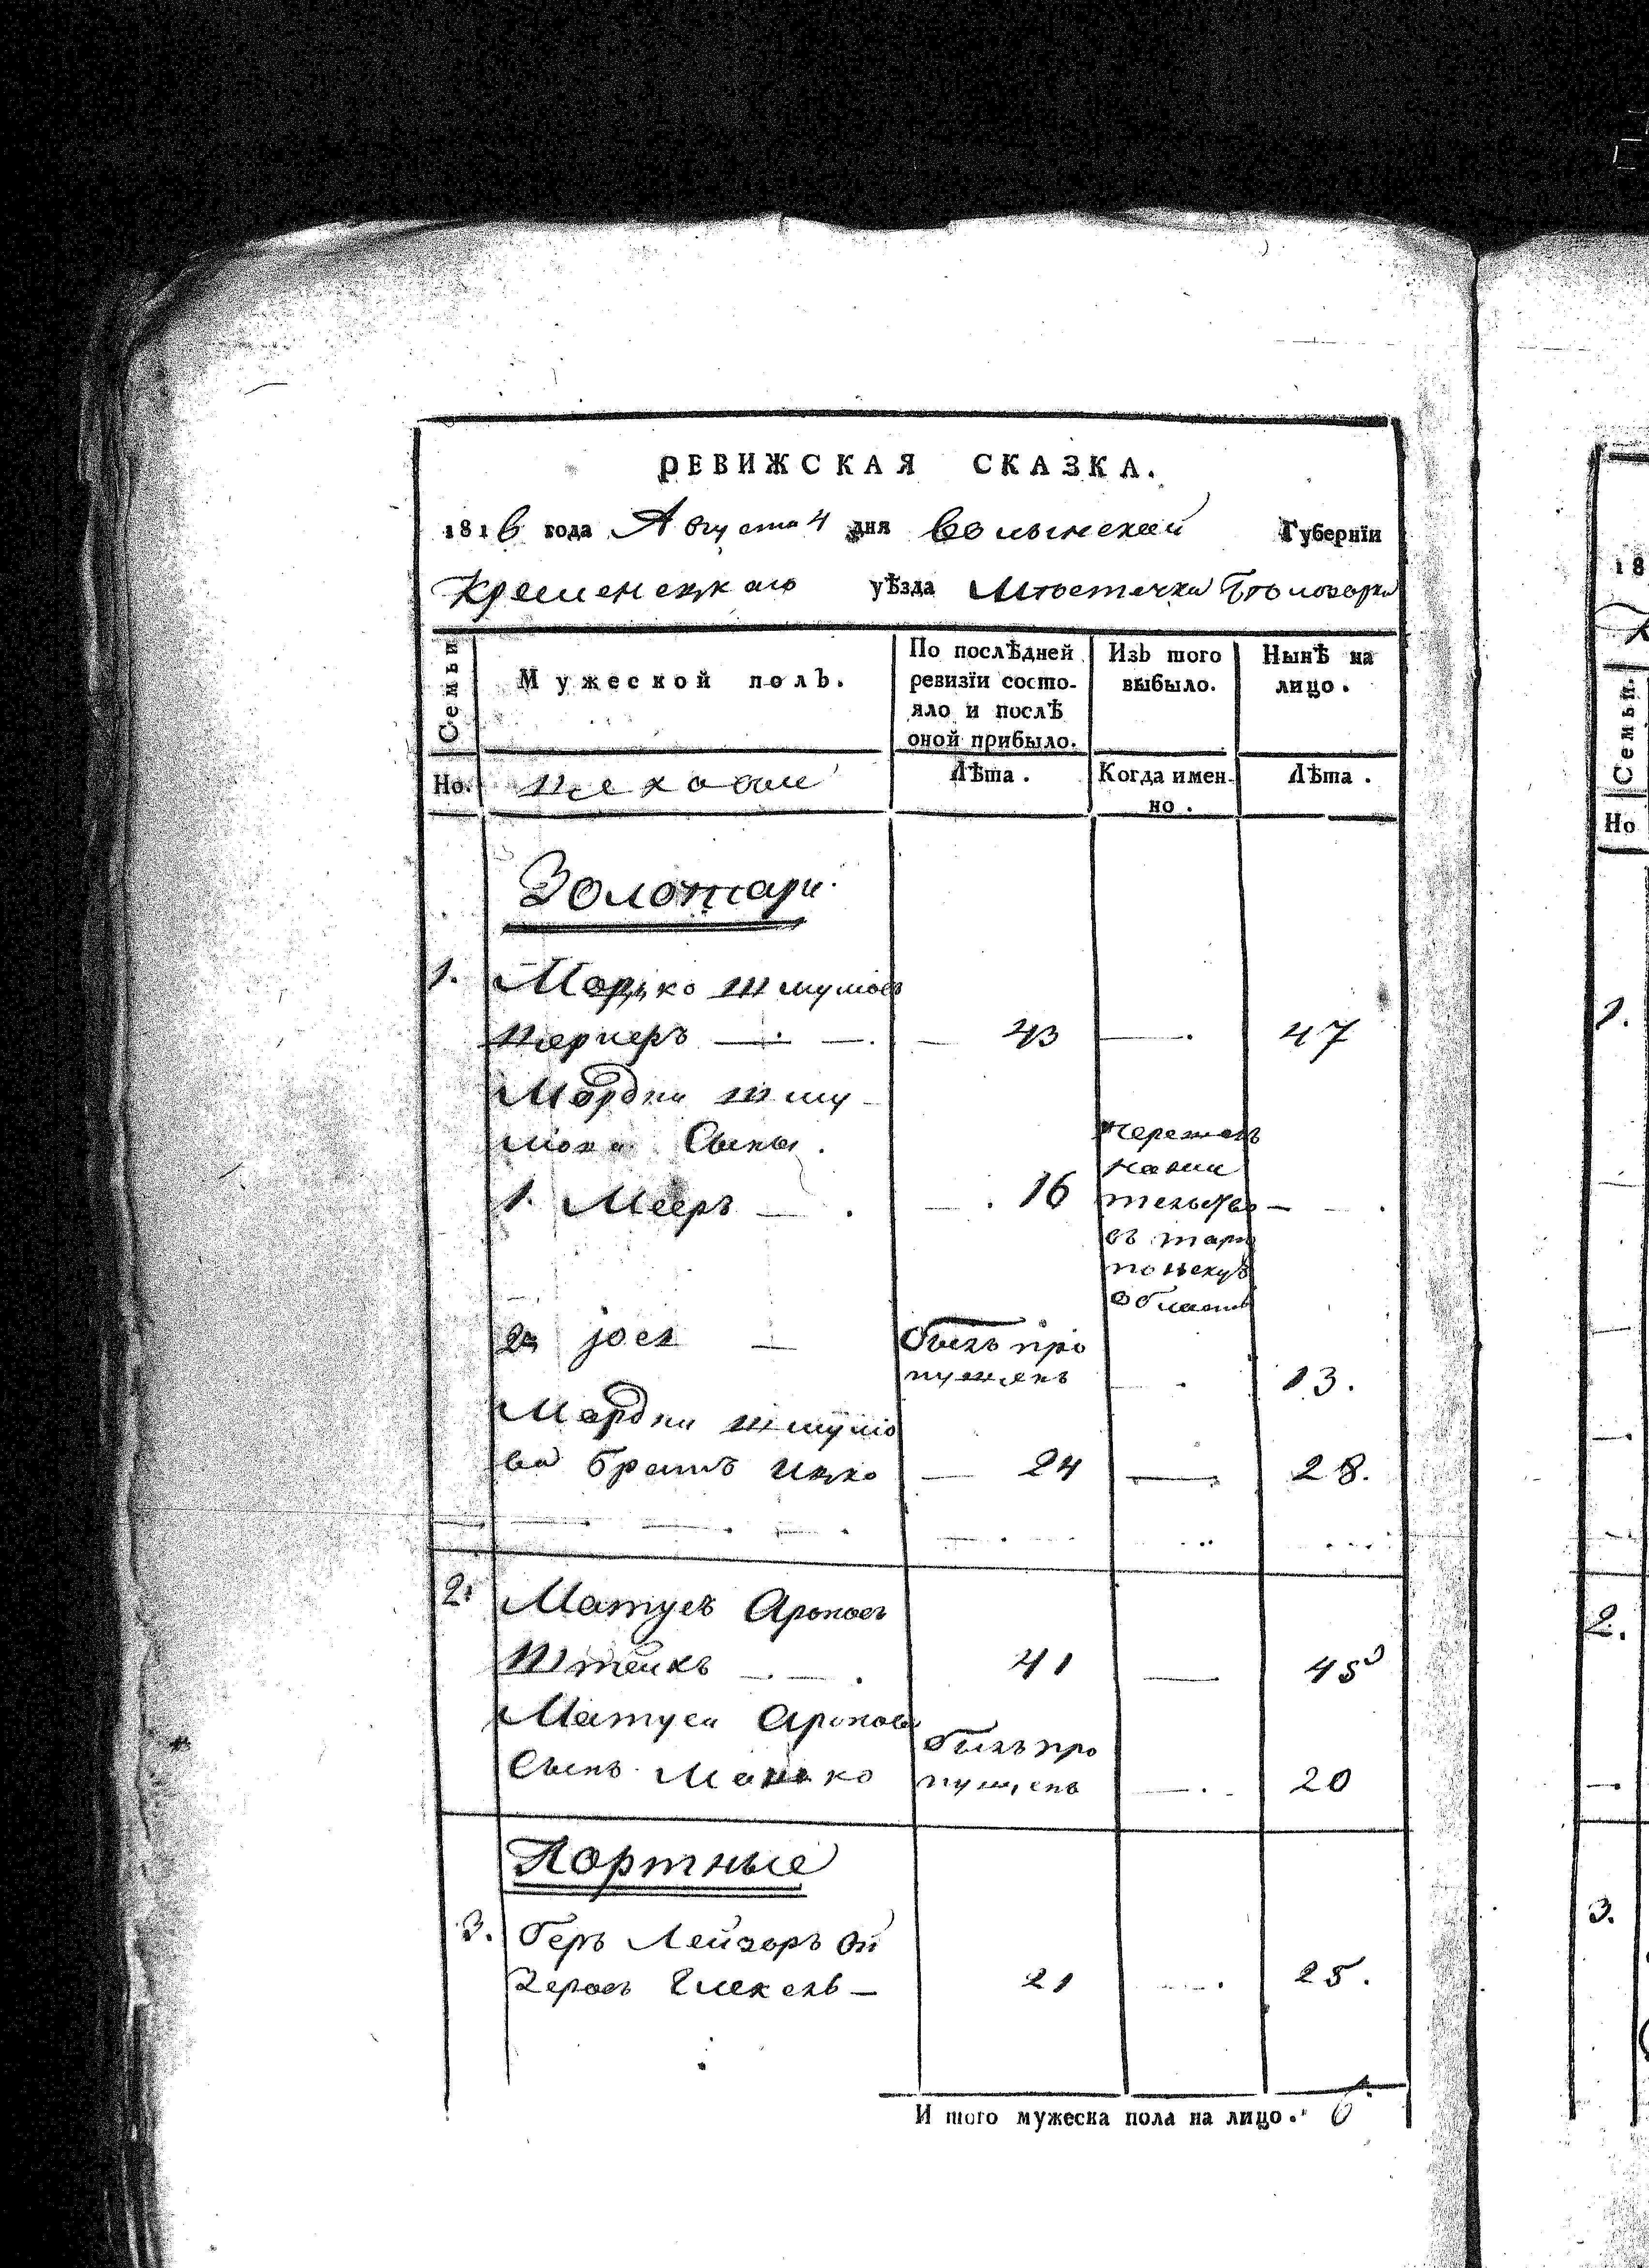 РЕВИЖСКАЯ СКАЗКА.
1816 года Августа 4 дня Волынской Губернїи
Кременецкаго уѣзда Мѣстечка Бѣлозорки
Семьи
Мужеской полъ.
По послѣдней ревизїи состо-
яло и послѣ
оной прибыло.
Изъ того
выбыло.
Нынѣ на
лицо.
Но.
Цеховые
Лѣта.
Когда имен-
но.
Лѣта.
Золотари
1. Мордко Шмулiовъ
43 — 47
Мордки Шму
лiова Сыны.
1. Мееръ — 16
в тарно
польскую
Область
2. Jось — былъ про
пущенъ — 13.
Мордки Шмулiо
ва братъ Ицко — 24 — 28.
2. Матусъ Ароновъ
Штейнъ 41 — 45
Матуса Аронова
Сынъ Манько
былъ про
пущенъ — 20
Портные
3. Беръ Лейзоръ Ой
зеровъ 21 25.
И того мужеска пола на лицо. 6
18
Семьи.
Но
1.
2.
3.